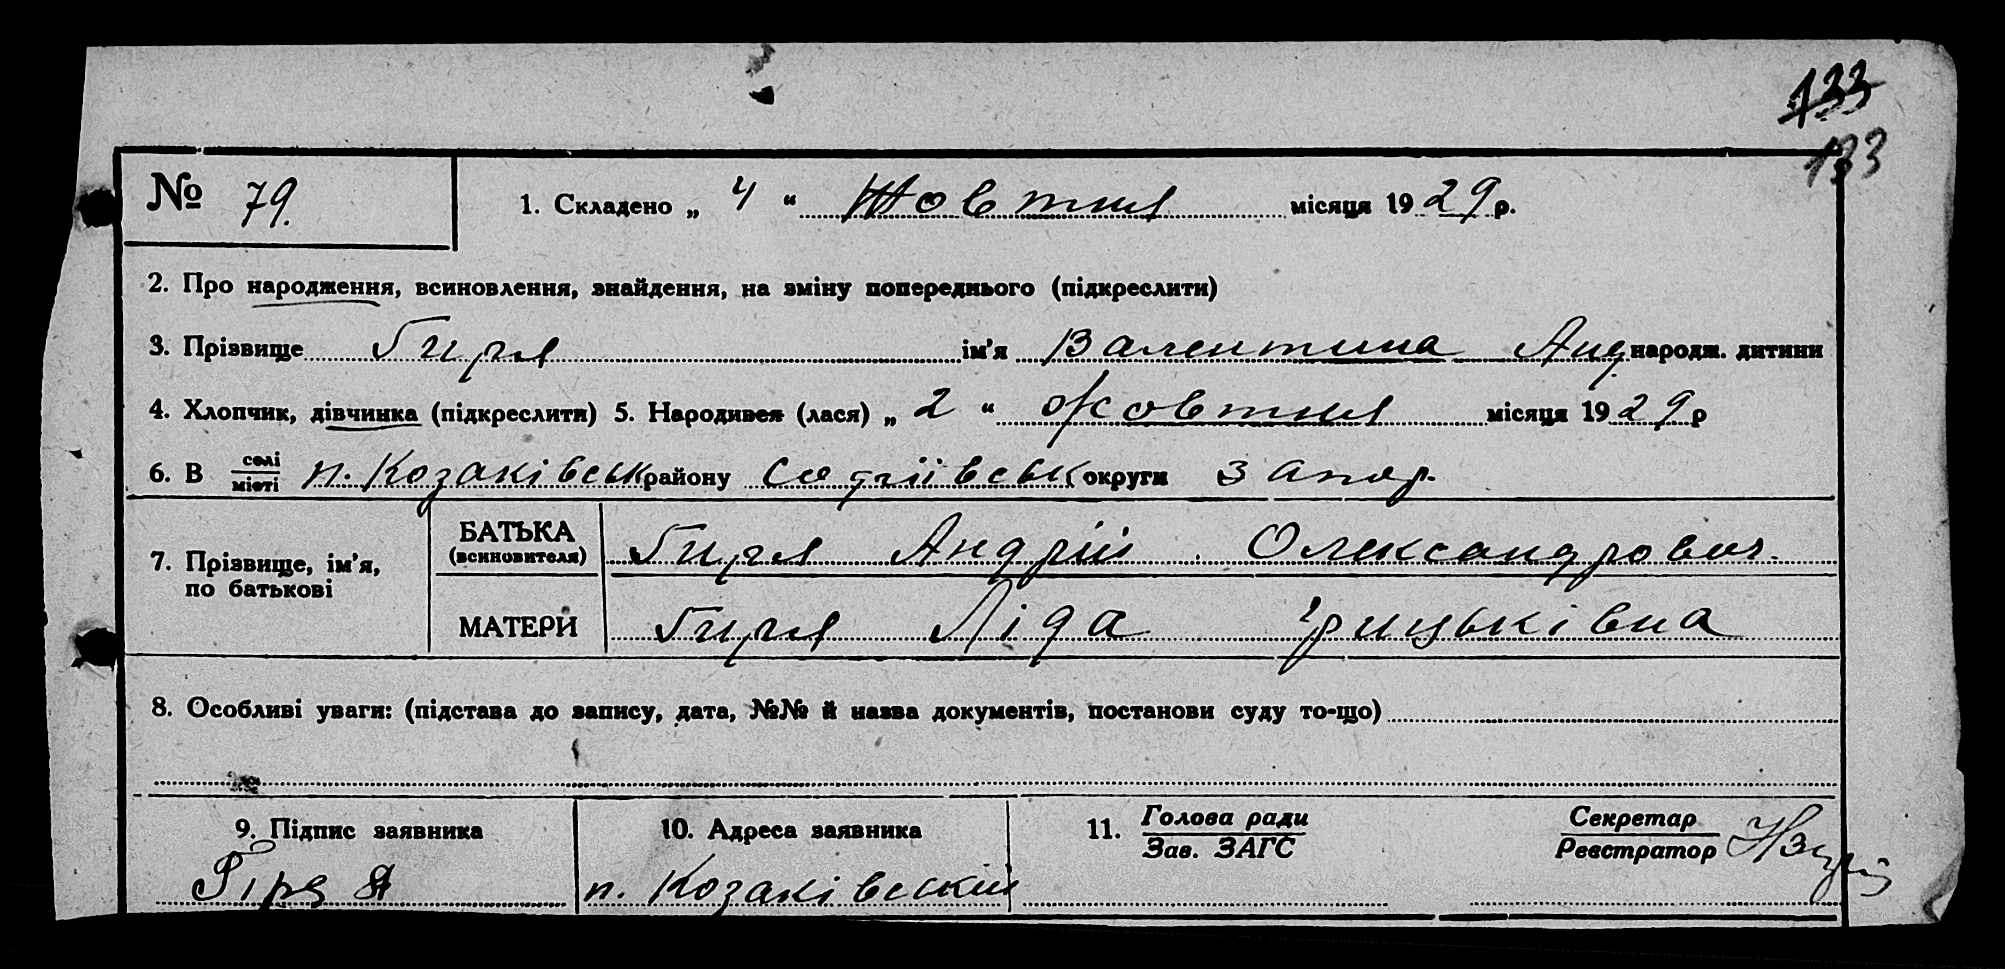 133
133
№ 79. 1. Складено „ 4 “ Жовтня місяця 1929 р.
2. Про народження, всиновлення, знайдення, на зміну попереднього (підкреслити)
3. Прізвище Гиря ім’я Валентина Анд народж. дитини
4. Хлопчик, дівчинка (підкреслити) 5. Народився (лася) „ 2 “ Жовтня місяця 1929 р
6. В селі місті п. Козаківськ району Софіївськ округи Запор.
7. Прізвище, ім’я, по батькові
БАТЬКА (всиновителя) Гиря Андрій Олександрович.
МАТЕРИ Гиря Ліда Грицьківна
8. Особливі уваги: (підстава до запису, дата, №№ й назва документів, постанови суду то-що)
9. Підпис заявника 10. Адреса заявника 11. Голова ради Зав. ЗАГС Секретар Реєстратор
Гіря п. Козаківский